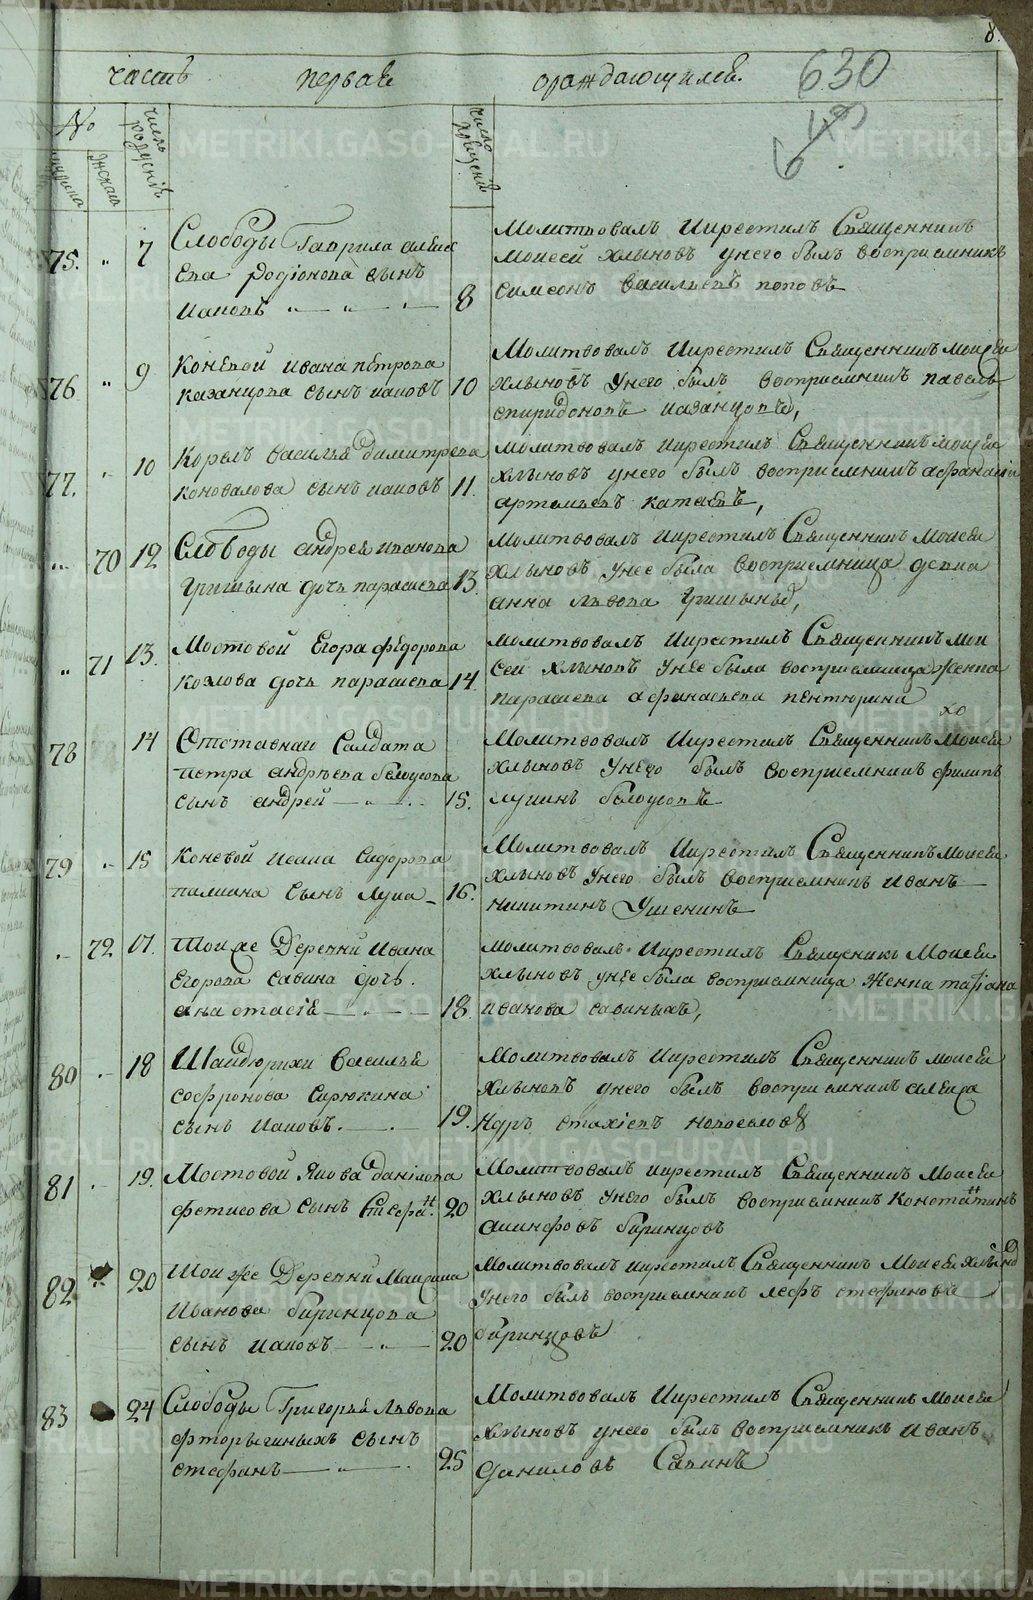 8.
часть первая ораждающихся.
630
№
число рождения
число крещения
мужска
женска
75. " 7 Слободы Гаврила Алекс
ѣева Родіонова сынъ
Иаковъ 8
Молитвовалъ икрестилъ Священникъ
Моисей Хлыновъ унего былъ восприемникъ
Симеонъ Васильевъ Поповъ
76 " 9 Коневой Ивана Петрова
Казанцова сынъ Иаковъ 10
Молитвовалъ икрестилъ Священникъ Моисей
Хлыновъ унего былъ восприемникъ Павелъ
Спиридоновъ Казанцовъ,
77. " 10 Корелъ Василья Димитрева
Коновалова сынъ Иаковъ 11.
Молитвовалъ икрестилъ Священникъ Моисей
Хлыновъ унего былъ восприемникъ Афанасій
Артемьевъ Катаевъ,
" 70 12 Слободы Андрея Иванова
Гришына дочь Парасковья 13.
Молитвовалъ икрестилъ Священникъ Моисей
Хлыновъ унее была восприемница девка
Анна Львова Гришыныхъ,
" 71 13. Мостовой Егора Федорова
Козлова дочь Парасковья 14.
Молитвовалъ икрестилъ Священникъ Мои
сей Хлыновъ унее была восприемница Женка
Парасковья Афанасьева Пентюрина
хо
78 14 Отставнаго Салдата
Петра Андрѣева Белоусова
сынъ Андрей 15.
Молитвовалъ икрестилъ Священникъ Моисей
Хлыновъ унего былъ восприемникъ Филипъ
Лукинъ Белоусовъ
79 " 15 Коневой Ивана Сидорова
сынъ Лука 16.
Молитвовалъ икрестилъ Священникъ Моисей
Хлыновъ унего былъ восприемникъ Иванъ
Никитинъ Ушенинъ
" 72 17. Тои же Деревни Ивана
Егорова Савина дочь
Анастасіе 18.
Молитвовалъ икрестилъ Священникъ Моисей
Хлыновъ унее была восприемница Женка Татіана
Иванова Савиныхъ,
80 " 18 Шайдюрихи Василья
Софронова Сирюкина
сынъ Иаковъ. 19.
Молитвовалъ икрестилъ Священникъ Моисей
Хлыновъ унего былъ восприемникъ Алекса
ндръ Новоселовъ
81 " 19. Мостовой Якова Данилова
Фетисова сынъ Стефанъ. 20
Молитвовалъ икрестилъ Священникъ Моисей
Хлыновъ унего былъ восприемникъ Констатинъ
Акинфовъ Баринцовъ
82 " 20 Тои же Деревни Максима
Иванова Баринцова
сынъ Иаковъ 20
Молитвовалъ икрестилъ Священникъ Моисей Хлыновъ
унего былъ восприемникъ Стефановъ
Баринцовъ
83 24 Слободы Григорья Львова
Фторыгиныхъ сынъ
Стефанъ 25
Молитвовалъ икрестилъ Священникъ Моисей
Хлыновъ унего былъ восприемникъ Иванъ
Даниловъ Савинъ
METRIKI.GASO-URAL.RU